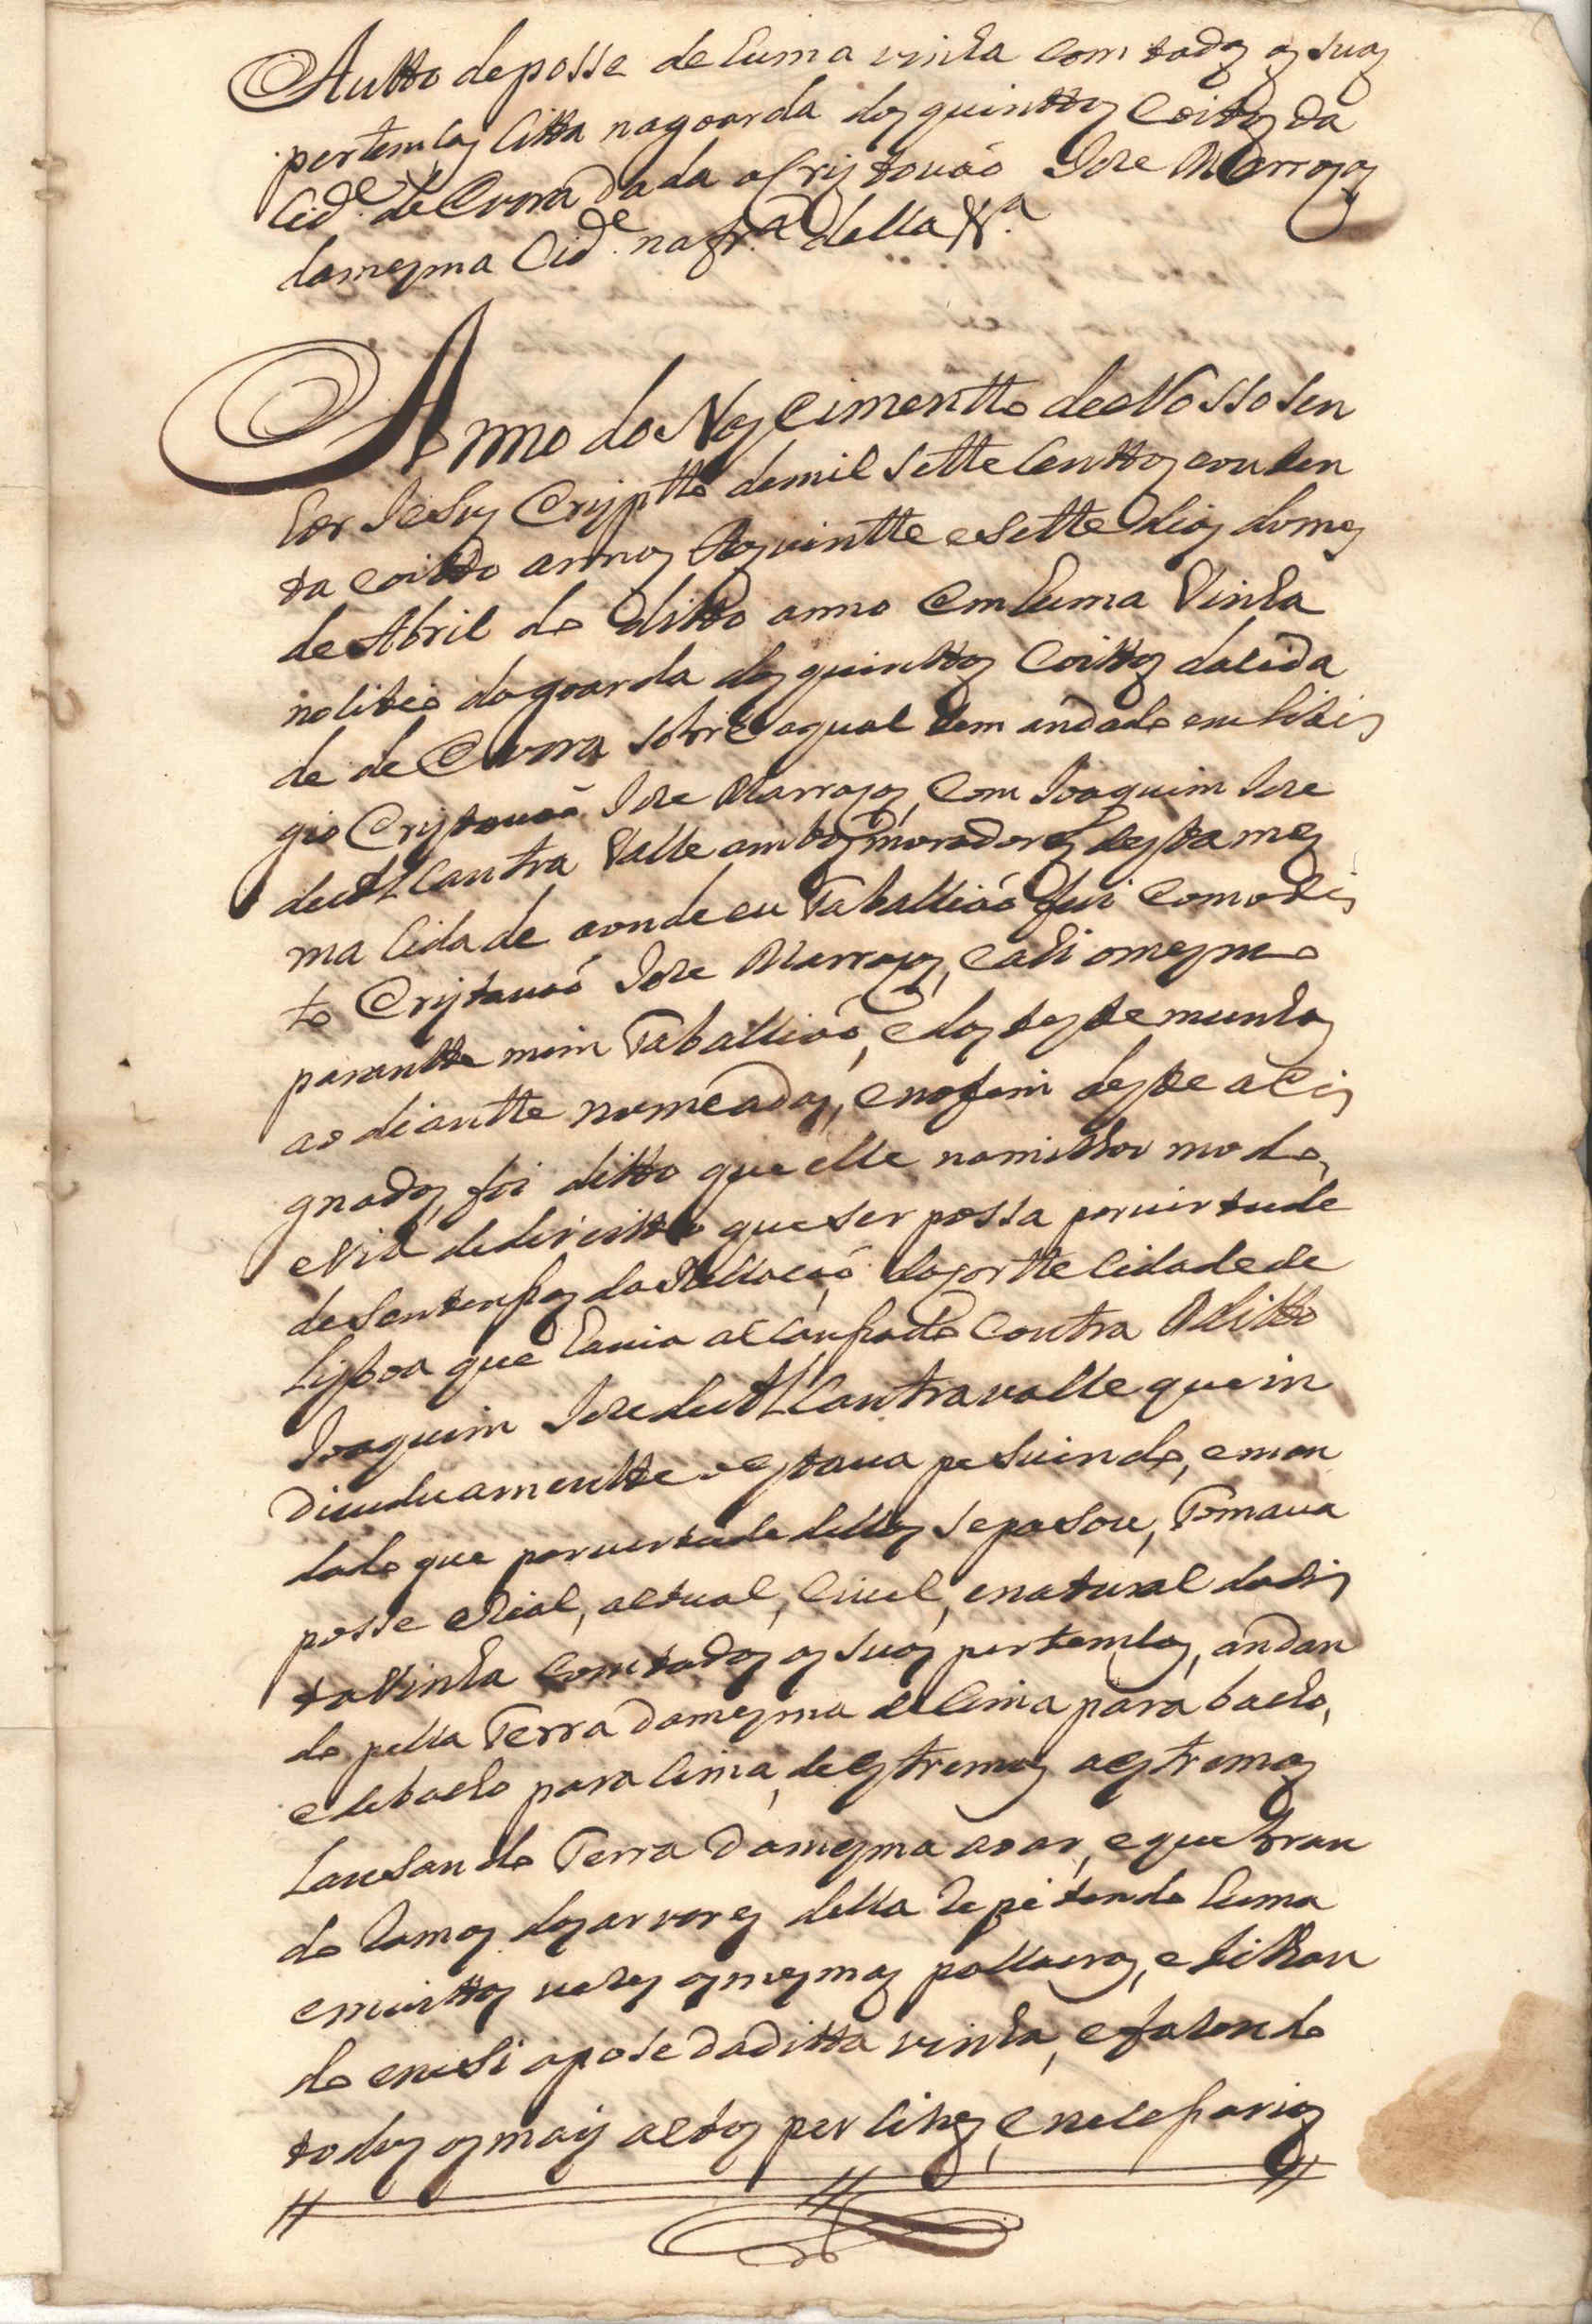 Autto deposse dehuma vinha com todas as suas
pertemsas citta nagoarda dos quinttos Coittos da
Cid.e de Evora dada a Cristovaõ Joze Marroyos
damesma Cid.e na fr.a della &.a
Anno do Nascimentto de Nosso Sen
hor Jesus Cristto demil sette Centtos eouten
ta eoitto annos Aos vintte esette dias domes
de Abril do ditto anno Emhuma Vinha
nositio dagoarda dos quinttos Coittos dacida
de de Evora sobre aqual tem andado em liti
gio Cristovaõ Joze Marroyos, Com Joaquim Joze
de Alcantra Valle ambos moradores desta mes
ma Cidade aonde eu Taballiaõ fui Como di
to Cristavaõ Joze Marroyos, eahi omesmo
parantte mim Taballiaõ, edas testemunhas
ao diantte nomeadas, enofim deste aci
gnadas, foi ditto que elle namilhor modo,
eVia dedireitto queser possa porvirtude
desentensas da Rellacaõ dacortte Cidade de
Lisboa que havia alcansado Contra Oditto
Joaquim Joze de Alcantravalle que in
dividuamentte aestava pesuindo, eman
dado que porvertude dellas sepasou, Tomava
posse eRial, actual, Civel, enatural dadi
ta Vinha Comtodas as suas pertemsas, andan
do pella Terra damesma de Cima para baxo,
edebaxo para Cima, de estremas aestremas
Lansando Terra damesma aoar, equebran
do Ramos das arvores della Repetindo huma
emuittas vezes as mesmas pallavras, e Citan
do emsi apose daditta vinha, efazendo
todos os mais actos percizos, enecesarios